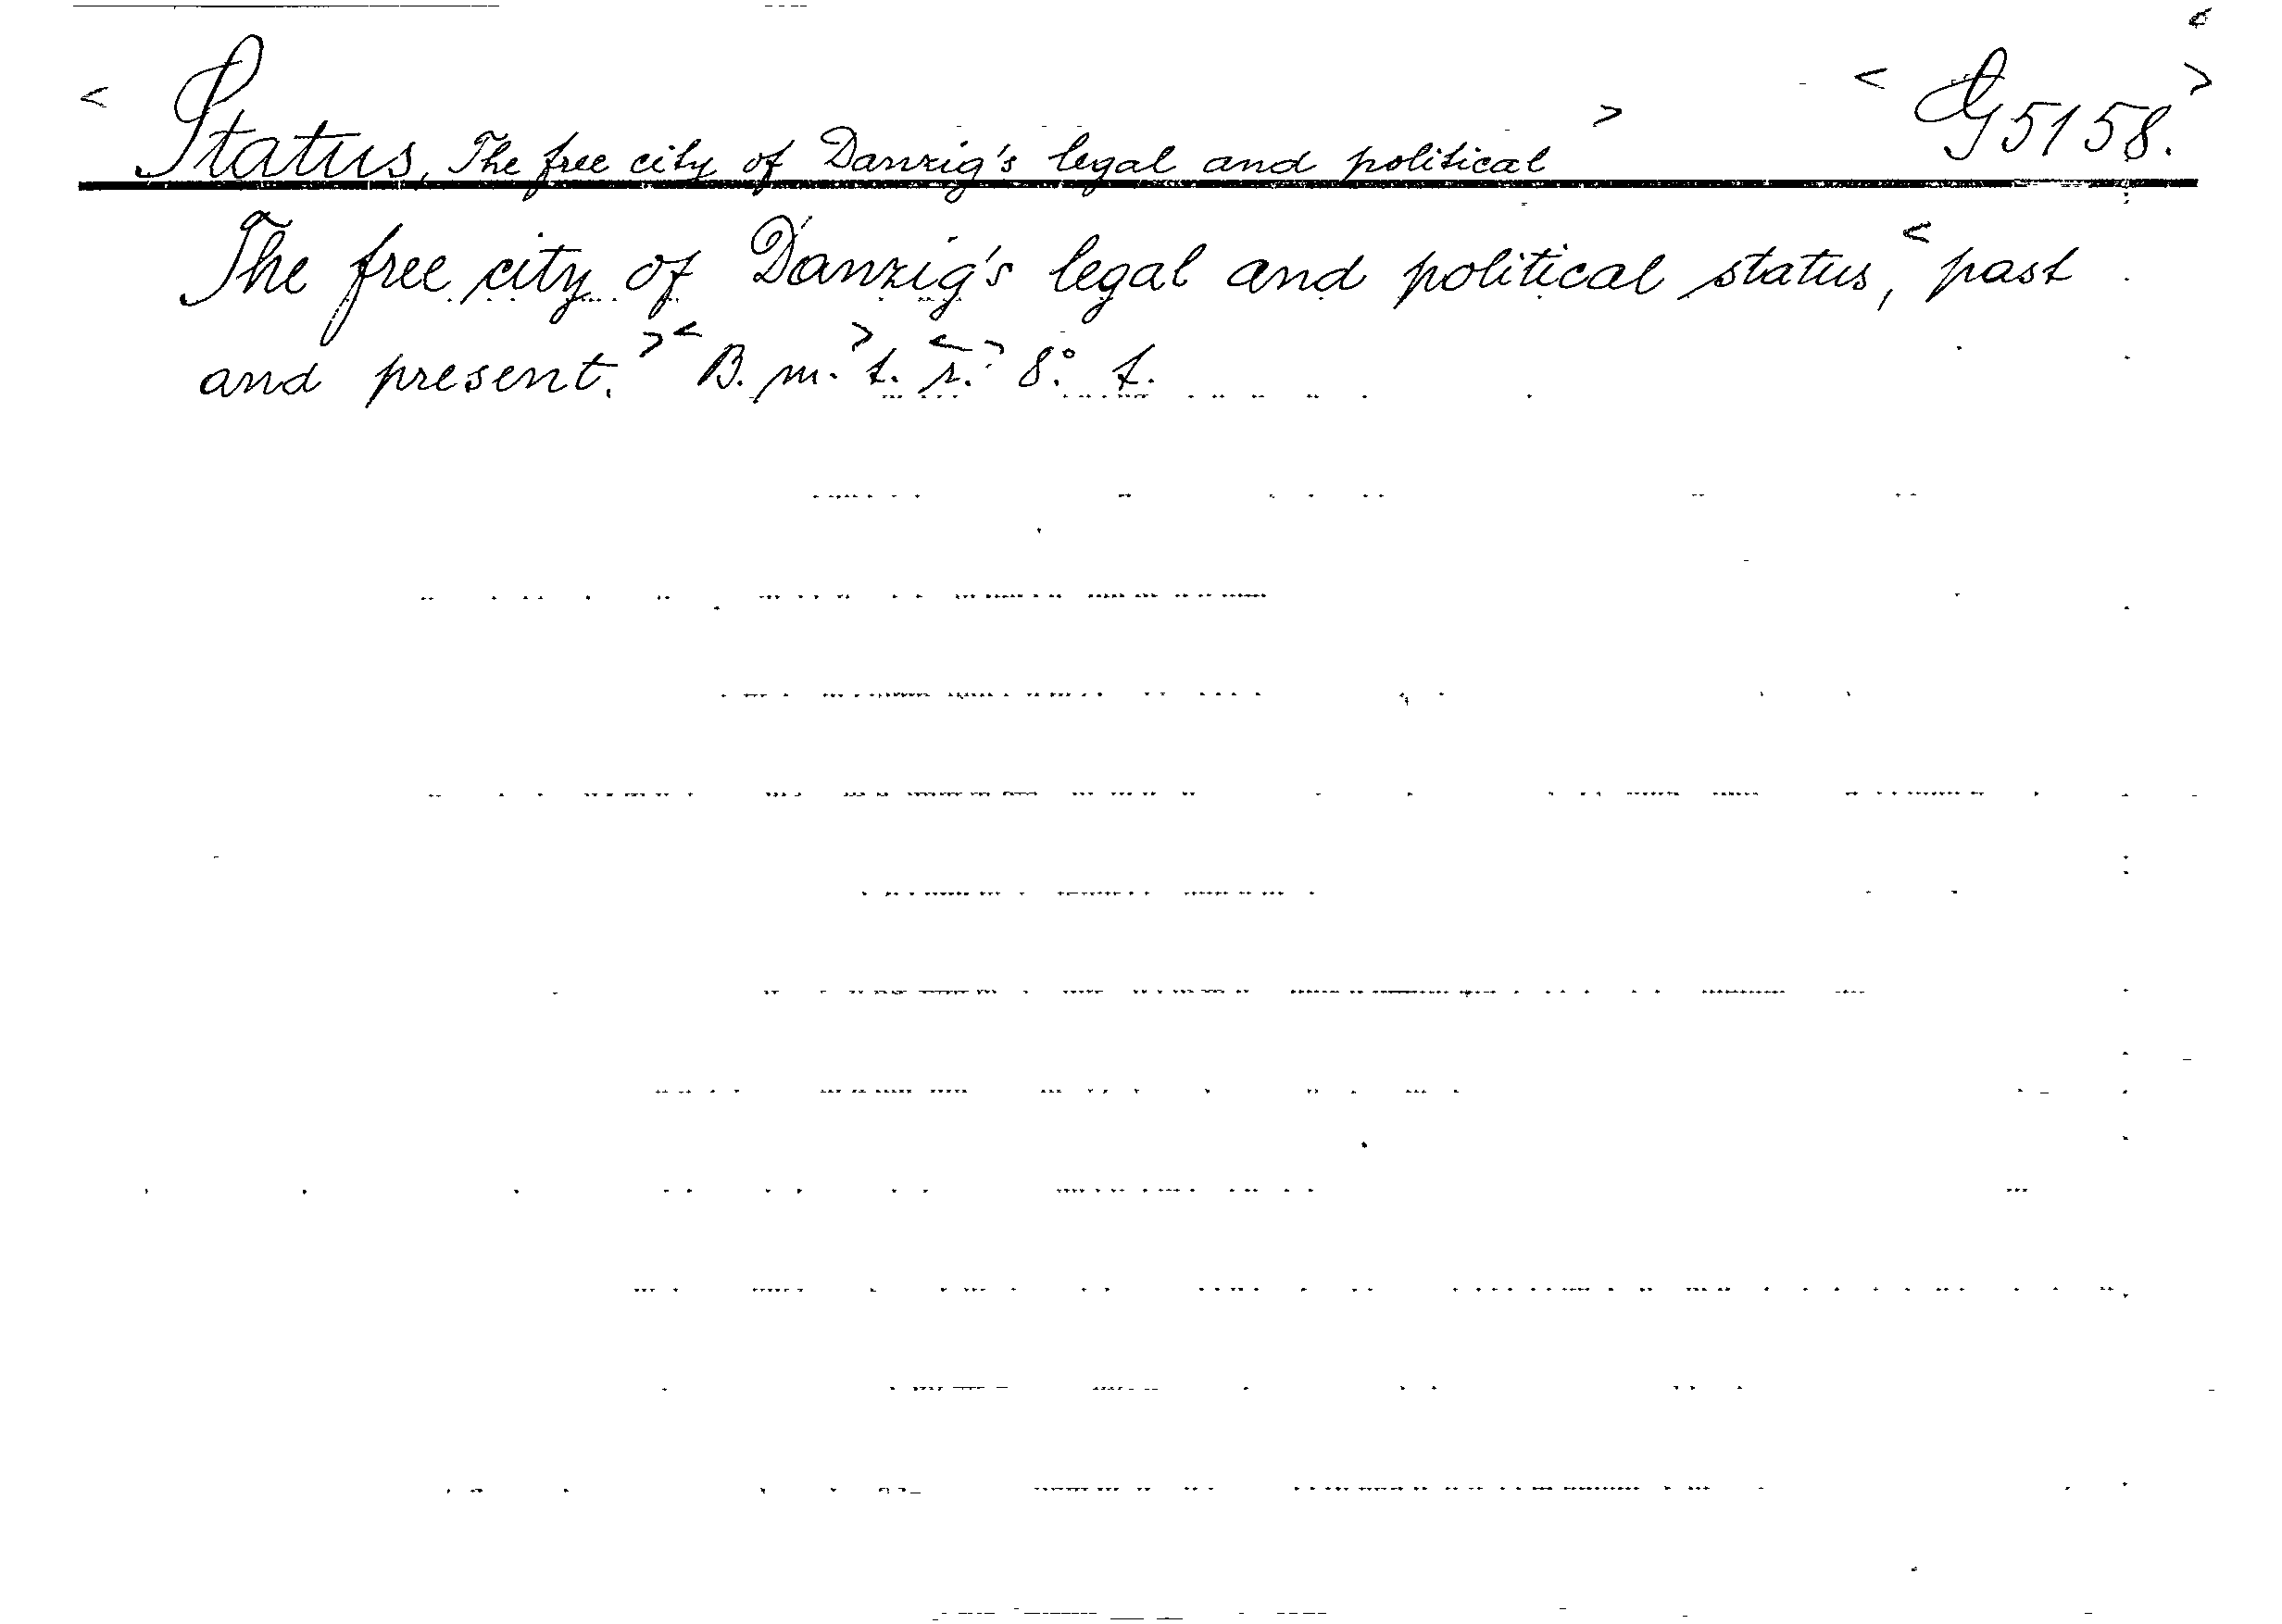 < Status, The free city of Danzig's legal and political > < G 5158. >
The free city of Danzig's legal and political status, < past
and present. > < B. m. > t. < r. > 8° f.